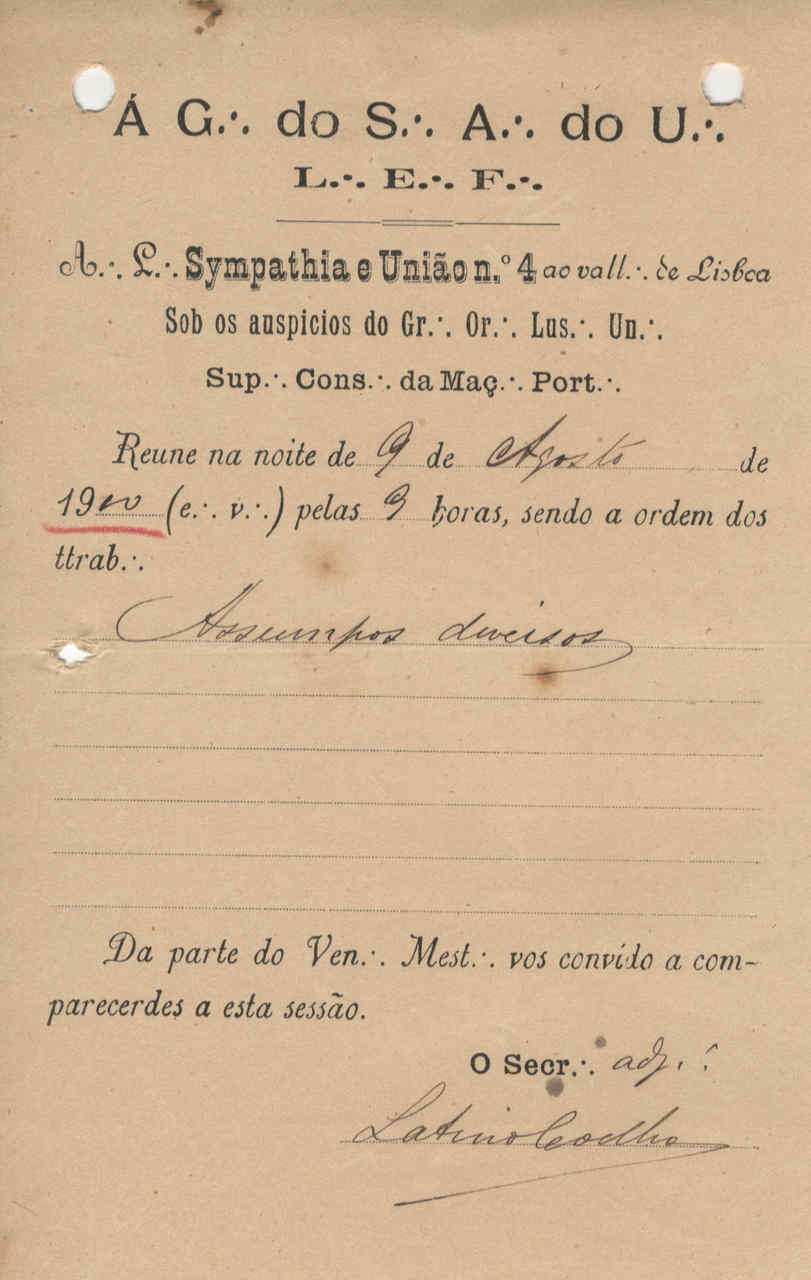 Á G.·. do S.·. A.·. do U.·.
L.·. E.·. F.·.
A.·. L.·. Sympathia e União n.º 4 ao vall.·. de Lisboa
Sob os auspicios do Gr.·. Or.·. Lus.·. Un.·.
Sup.·. Cons.·. da Maç.·. Port.·.
Reune na noite de 9 de Agosto de
1900 (e.·. v.·.) pelas 9 horas, sendo a ordem dos
ttrab.·.
Assumpos diversos
Da parte do Ven.·. Mest.·. vos convido a com-
parecerdes a esta sessão.
O Secr.·. adj.·.
Latino Coelho